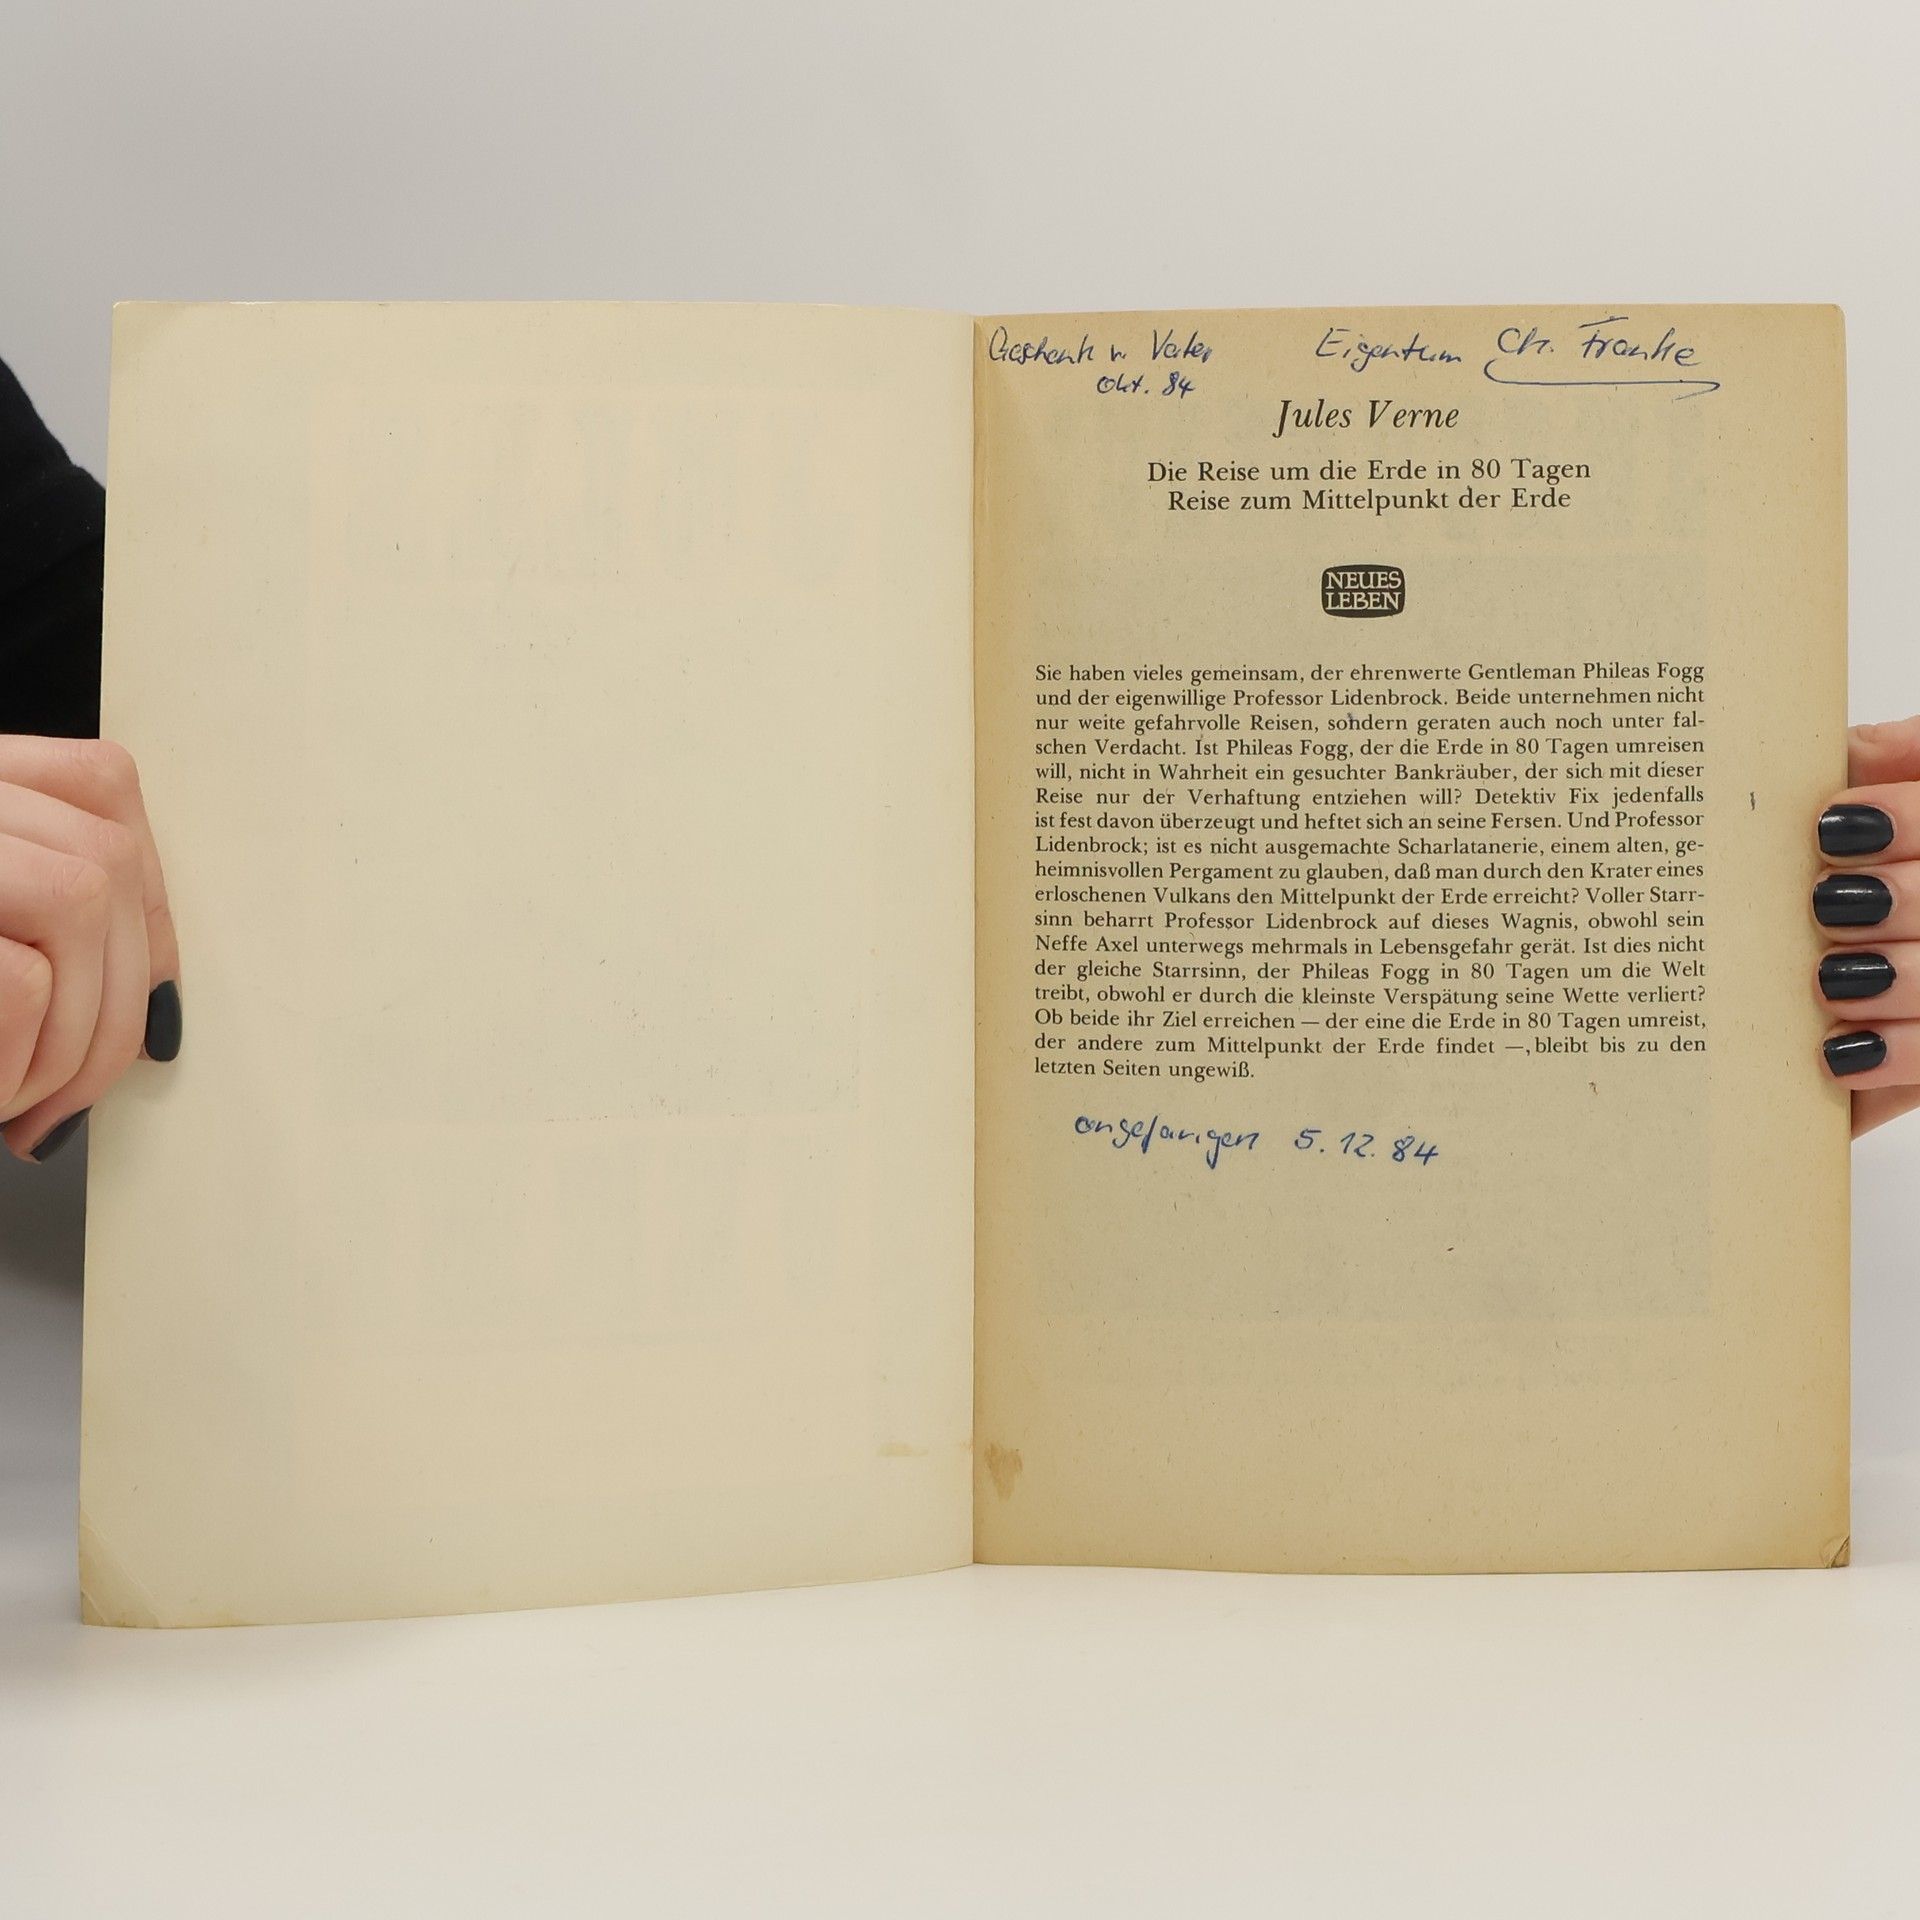 Geschenk v. Vater Eigentum Ch. Franke
Okt. 84
Jules Verne
Die Reise um die Erde in 80 Tagen
Reise zum Mittelpunkt der Erde
NEUES
LEBEN
Sie haben vieles gemeinsam, der ehrenwerte Gentleman Phileas Fogg
und der eigenwillige Professor Lidenbrock. Beide unternehmen nicht
nur weite gefahrvolle Reisen, sondern geraten auch noch unter fal-
schen Verdacht. Ist Phileas Fogg, der die Erde in 80 Tagen umreisen
will, nicht in Wahrheit ein gesuchter Bankräuber, der sich mit dieser
Reise nur der Verhaftung entziehen will? Detektiv Fix jedenfalls
ist fest davon überzeugt und heftet sich an seine Fersen. Und Professor
Lidenbrock; ist es nicht ausgemachte Scharlatanerie, einem alten, ge-
heimnisvollen Pergament zu glauben, daß man durch den Krater eines
erloschenen Vulkans den Mittelpunkt der Erde erreicht? Voller Starr-
sinn beharrt Professor Lidenbrock auf dieses Wagnis, obwohl sein
Neffe Axel unterwegs mehrmals in Lebensgefahr gerät. Ist dies nicht
der gleiche Starrsinn, der Phileas Fogg in 80 Tagen um die Welt
treibt, obwohl er durch die kleinste Verspätung seine Wette verliert?
Ob beide ihr Ziel erreichen — der eine die Erde in 80 Tagen umreist,
der andere zum Mittelpunkt der Erde findet —, bleibt bis zu den
letzten Seiten ungewiß.
angefangen 5. 12. 84